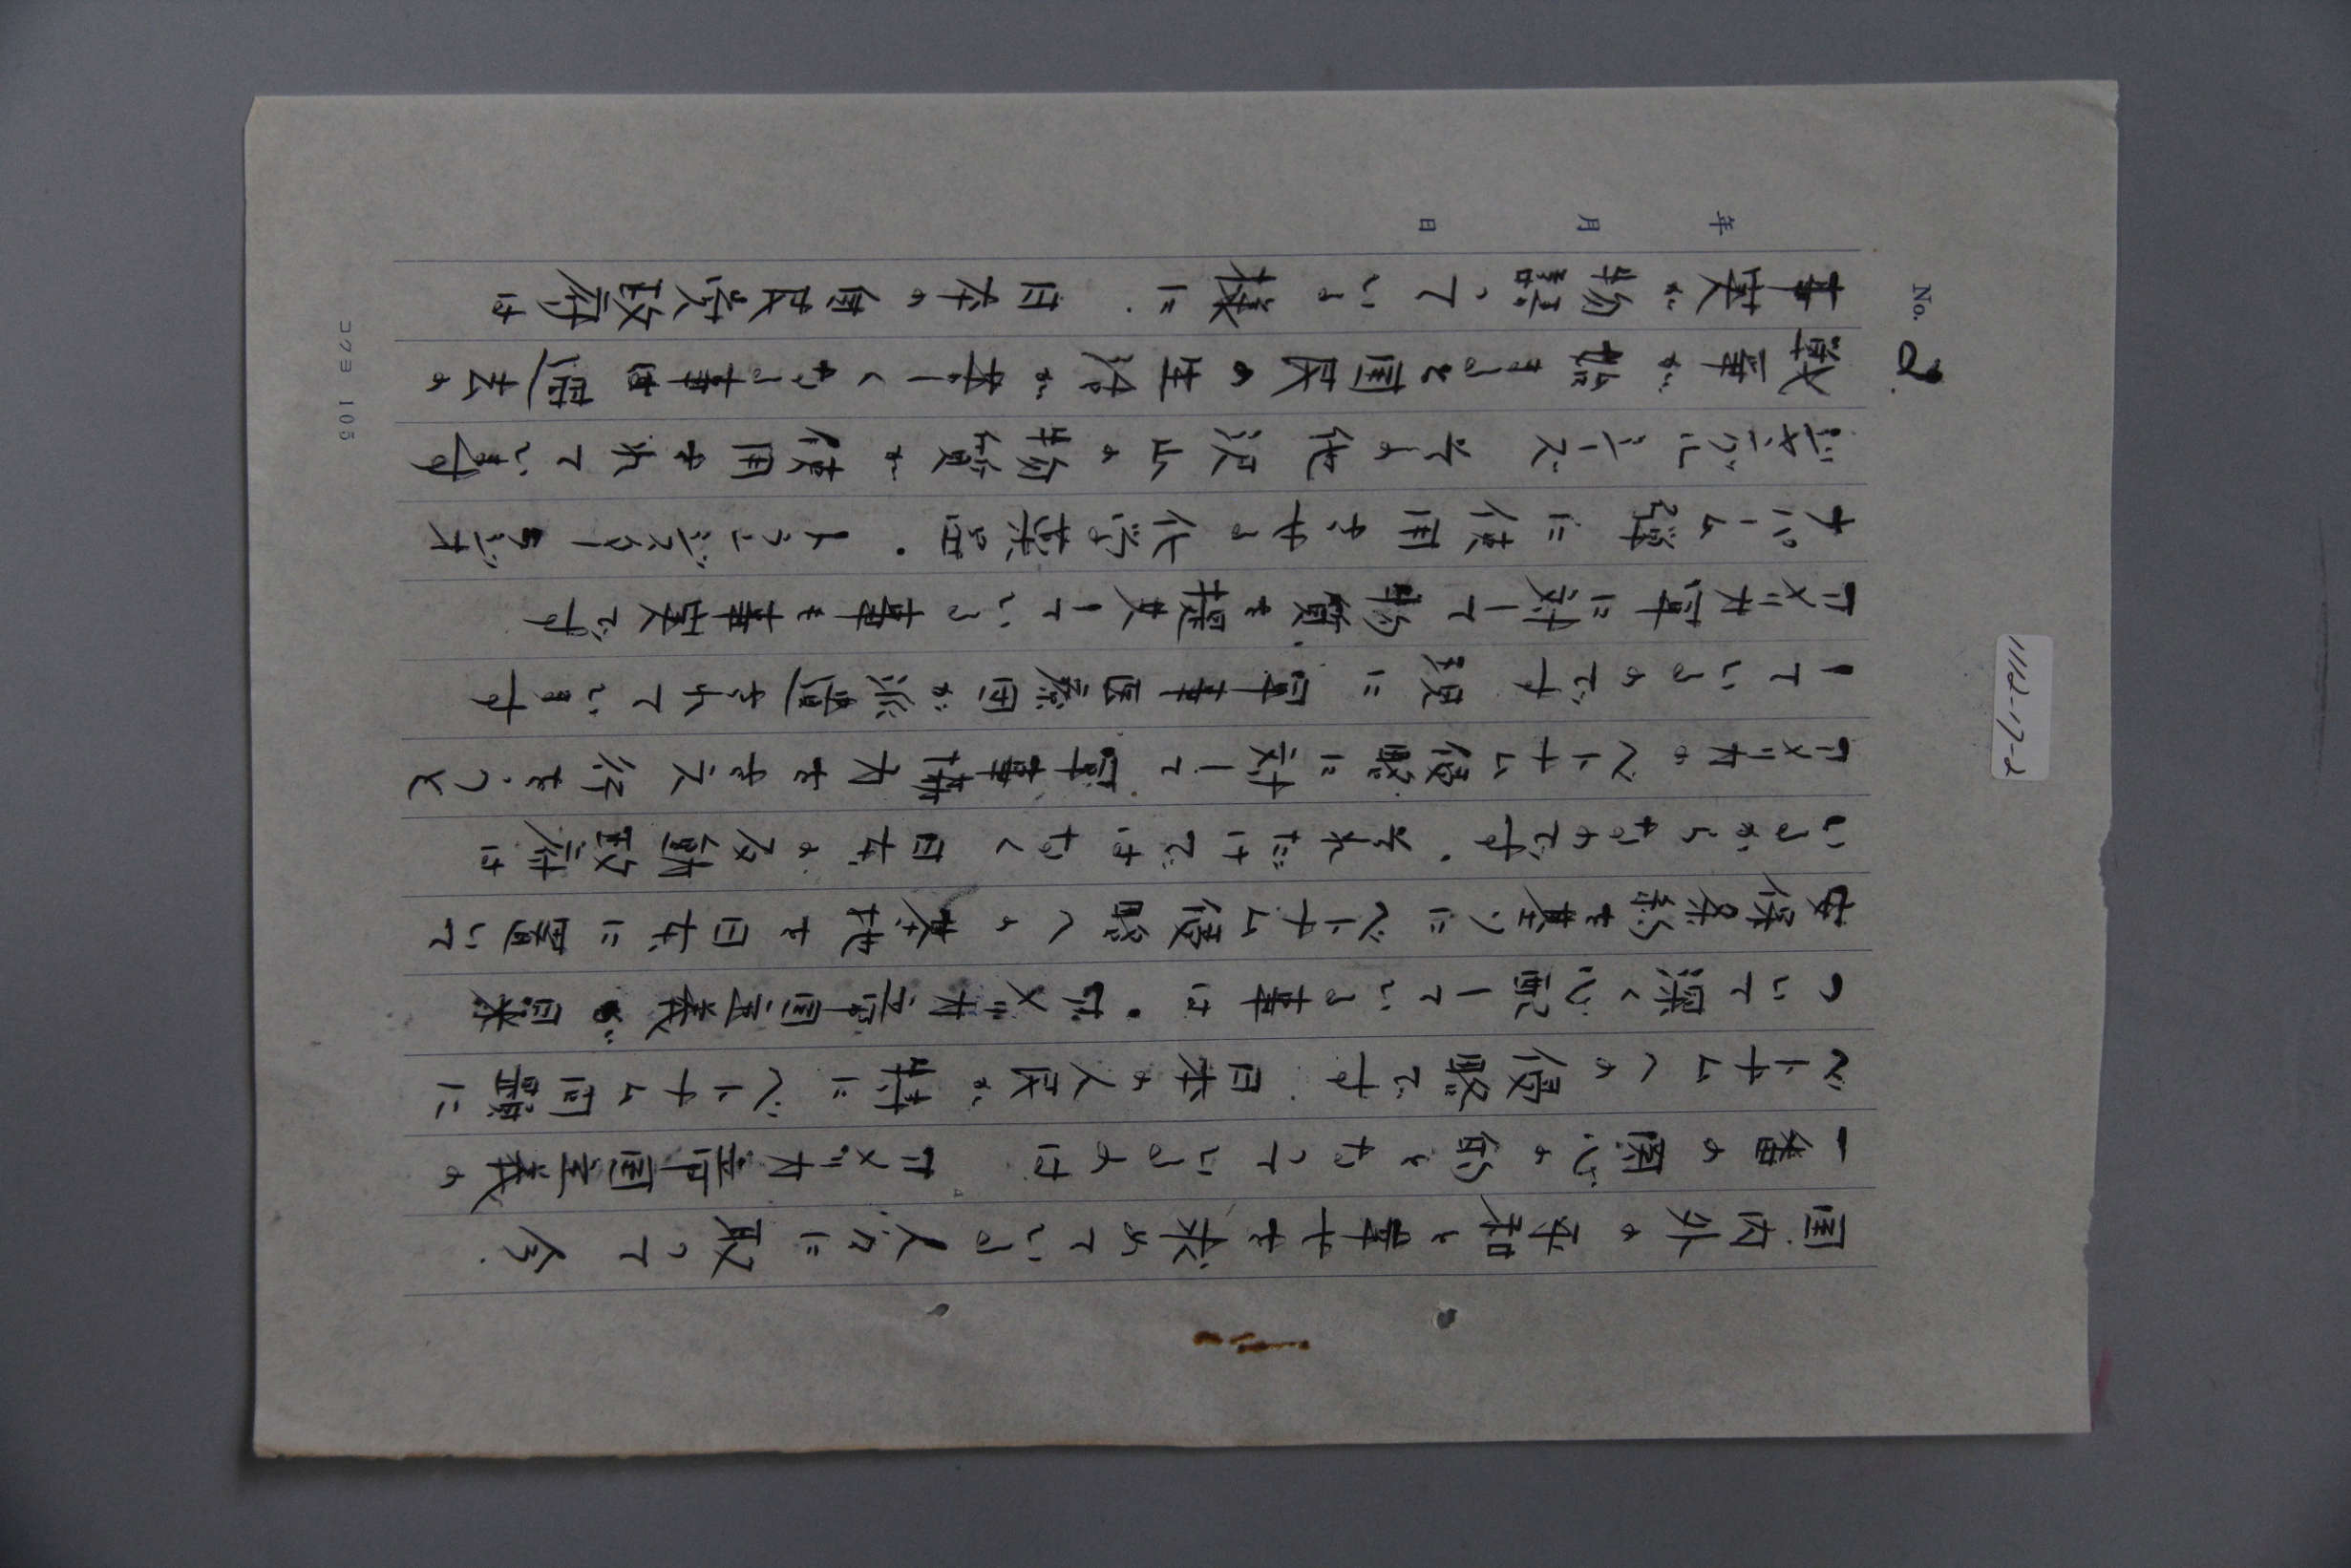 No. 2
年 月 日
国内外の平和と幸せを求めている人々に取って 今.
一番の関心の的となっているのは アメリカ帝国主義の
ベトナムへの侵略です. 日本の人民が特にベトナム問題に
ついて深く心配している事は.アメリカ帝国主義が日米
安保条約を基りにベトナム侵略への基地を日本に置いて
いるからなのです.それだけではなく 日本の反動政府は
アメリカのベトナム侵略に対して軍事協力をさえ行をうと
しているのです 現に軍事医療団が派遣されています
アメリカ軍に対して物資を提供している事も事実です
ナパーム弾に使用される化学薬品.トランジスターラジオ
その他沢山の物資が使用されています
戦争が始まると国民の生活が苦しくなる事は過去の
事実が物語っている様に.日本の自民党政府は
コクヨ 105
1112-17-2